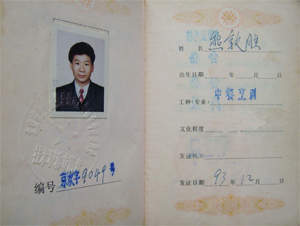 编号 京次字9049号
姓名 熊敦胜
出生日期 年 月 日
工种(专业) 中餐烹调
文化程度
发证机关
发证日期 93年12月 日